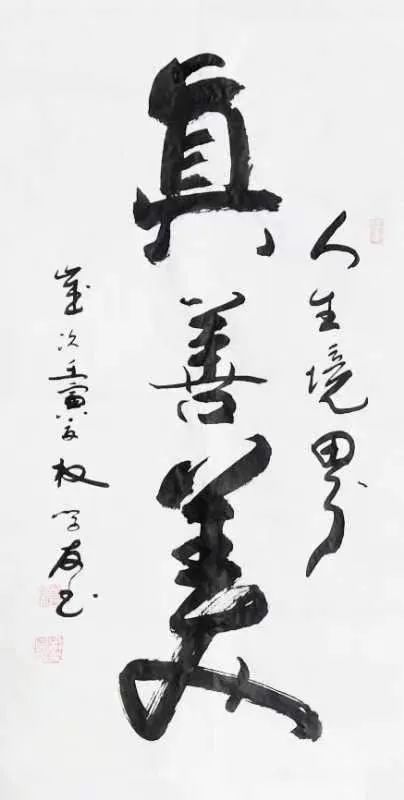 人生境界
真善美
歲次壬寅 权学友书